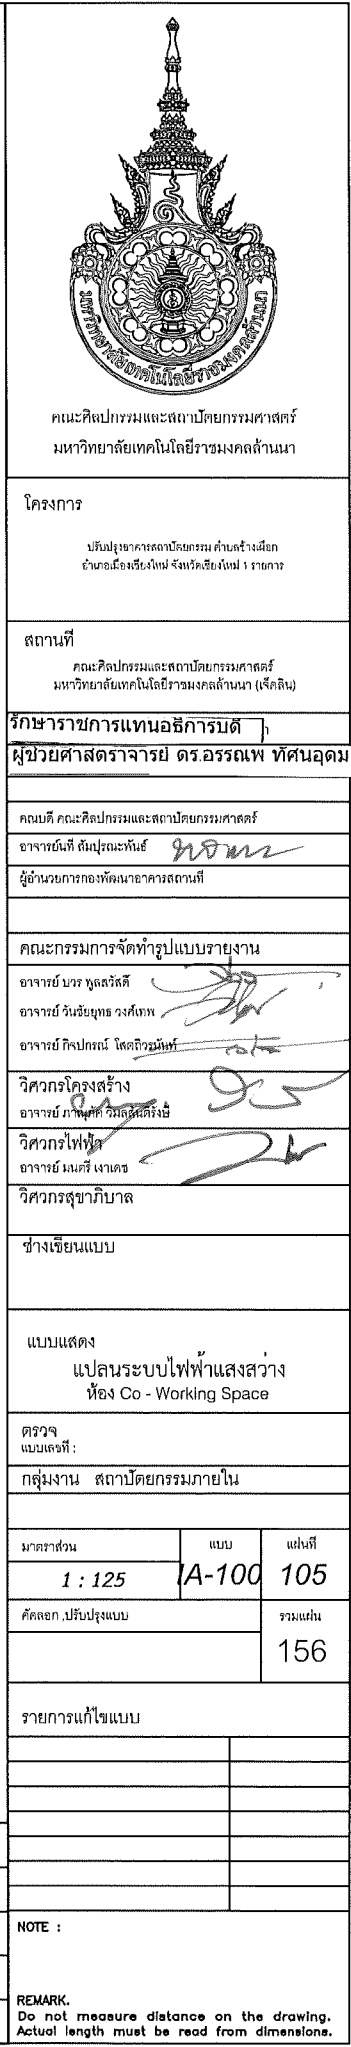 มหาวิทยาลัยเทคโนโลยีราชมงคลล้านนา
คณะศิลปกรรมและสถาปัตยกรรมศาสตร์
มหาวิทยาลัยเทคโนโลยีราชมงคลล้านนา
โครงการ
ปรับปรุงอาคารสถาปัตยกรรม ตำบลช้างเผือก
อำเภอเมืองเชียงใหม่ จังหวัดเชียงใหม่ 1 รายการ
สถานที่
คณะศิลปกรรมและสถาปัตยกรรมศาสตร์
มหาวิทยาลัยเทคโนโลยีราชมงคลล้านนา (เจ็ดลิน)
รักษาราชการแทนอธิการบดี
ผู้ช่วยศาสตราจารย์ ดร.อรรณพ ทัศนอุดม
คณบดี คณะศิลปกรรมและสถาปัตยกรรมศาสตร์
อาจารย์นที สัมปุรณะพันธ์
ผู้อำนวยการกองพัฒนาอาคารสถานที่
คณะกรรมการจัดทำรูปแบบรายงาน
อาจารย์ บวร พูลสวัสดิ์
อาจารย์ วันชัยยุทธ วงศ์เทพ
อาจารย์ กิจปกรณ์ โสตถิวรนันท์
วิศวกรโครงสร้าง
อาจารย์
วิศวกรไฟฟ้า
อาจารย์ มนตรี เงาเดช
วิศวกรสุขาภิบาล
ช่างเขียนแบบ
แบบแสดง
แปลนระบบไฟฟ้าแสงสว่าง
ห้อง Co - Working Space
ตรวจ
แบบเลขที่ :
กลุ่มงาน สถาปัตยกรรมภายใน
มาตราส่วน แบบ แผ่นที่
1 : 125 IA-100 105
คัดลอก ,ปรับปรุงแบบ รวมแผ่น
156
รายการแก้ไขแบบ
NOTE :
REMARK.
Do not measure distance on the drawing.
Actual length must be read from dimensions.